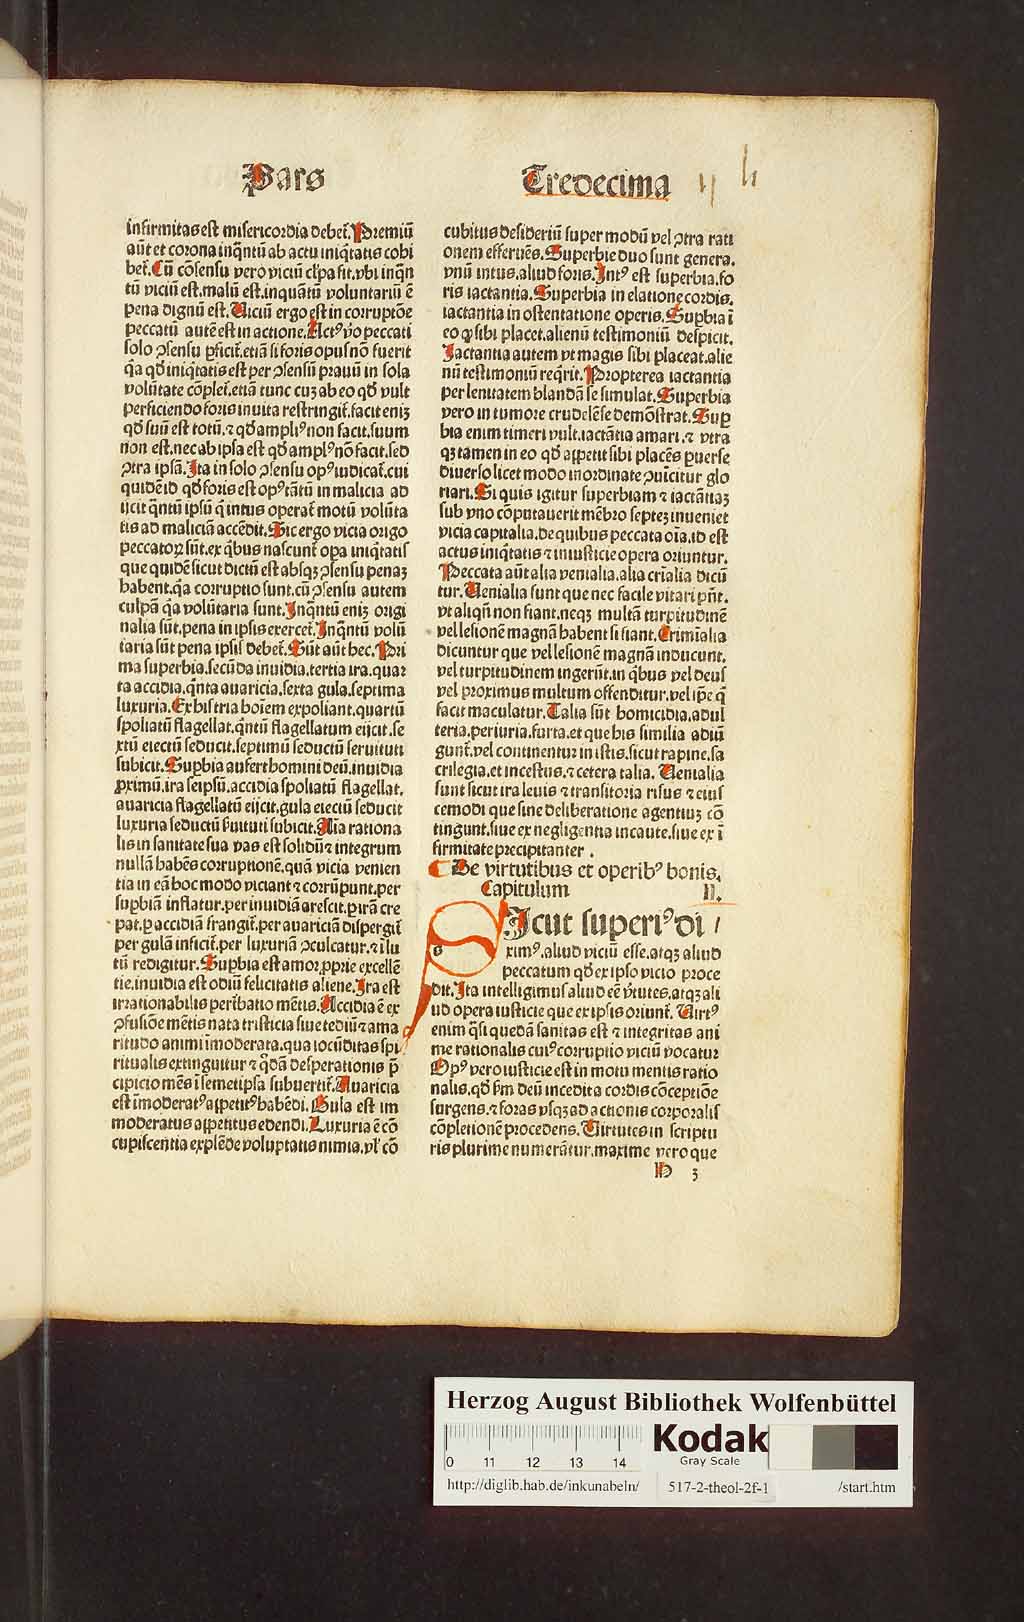 Pars Tredecima
infirmitas est misericordia debet᷑. Premiũ
aũt et corona inq̃ntũ ab actu iniq̃tatis cohi
bet᷑. Cũ cõsensu vero viciũ cl̃pa fit. vbi inq̃n
tũ viciũ est. malũ est. inquãtũ voluntariũ ẽ
pena dignũ est. Uiciũ ergo est in corruptõe
peccatũ autẽ est in actione. Actꝰ ṽo peccati
solo ꝯsensu ꝑficit᷑. etiã si foris opus nõ fuerit
q̃a qď iniq̃tatis est per ꝯsensũ prauũ in sola
volũtate cõplet᷑. etiã tunc cuꝫ ab eo qď vult
perficiendo foris inuita restringit᷑. facit eniꝫ
qď suũ est totũ. ⁊ qď ampliꝰ non facit. suum
non est. nec ab ipsa est qď amplꝰ nõ facit. sed
ꝯtra ipsã. Ita in solo ꝯsensu opꝰ iudicat᷑. cui
quidẽ id qď foris est opꝰ tãtũ in malicia ad
ijcit q̃ntũ ipsũ q̃ intus operat᷑ motũ volũta
tis ad maliciã accẽdit. Sic ergo vicia origo
peccatoꝝ sũt. ex q̃bus nascunt᷑ opa iniq̃tatis
que quidẽ sicut dictũ est absqꝫ ꝯsensu penaꝫ
habent. q̃a corruptio sunt. cũ ꝯsensu autem
culpã q̃a volũtaria sunt. Inq̃ntũ eniꝫ origi
nalia sũt. pena in ipsis exercet᷑. Inq̃ntũ volũ
taria sũt pena ipsis debet᷑. Sũt aũt hec. Pri
ma superbia. secũda inuidia. tertia ira. quar
ta accidia. q̃nta auaricia. sexta gula. septima
luxuria. Ex his tria hoĩem expoliant. quartũ
spoliatũ flagellat. q̃ntũ flagellatum eijcit. se
xtũ eiectũ seducit. septimũ seductũ seruituti
subicit. Suꝑbia aufert homini deũ. inuidia
ꝓximũ. ira seipsũ. accidia spoliatũ flagellat.
auaricia flagellatũ eijcit. gula eiectũ seducit
luxuria seductũ ẜuituti subicit. Aĩa rationa
lis in sanitate sua vas est solidũ ⁊ integrum
nullã habẽs corruptionẽ. quã vicia venien
tia in eã hoc modo viciant ⁊ corrũpunt. per
suꝑbiã inflatur. per inuidiã arescit. ꝑ irã cre
pat. ꝑ accidiã frangit᷑. per auariciã dispergit᷑
per gulã inficit᷑. per luxuriã ꝯculcatur. ⁊ ĩ lu
tũ redigitur. Suꝑbia est amor ꝓprie excellẽ
tie. inuidia est odiũ felicitatis aliene. Ira est
irrationabilis pert᷑batio mẽtis. Accidia ẽ ex
ꝯfusiõe mẽtis nata tristicia siue tediũ ⁊ ama
ritudo animi ĩmoderata. qua iocũditas spi
ritualis extinguitur ⁊ q̃dã desperationis p̃
cipicio mẽs ĩ semetipsa subuertit᷑. Auaricia
est ĩmoderatꝰ appetitꝰ habẽdi. Gula est im
moderatus appetitus edendi. Luxuria ẽ cõ
cupiscentia explẽde voluptatis nimia. vl̃ cõ
cubitus desideriũ super modũ vel ꝯtra rati
onem efferuẽs. Superbie duo sunt genera.
vnũ intus. aliud foris. Intꝰ est superbia. fo
ris iactantia. Superbia in elatione cordis.
iactantia in ostentatione operis. Suꝑbia ĩ
eo ꝙ sibi placet. alienũ testimoniũ despicit.
Iactantia autem vt magis sibi placeat. alie
nũ testimoniũ req̃rit. Propterea iactantia
per lenitatem blandã se simulat. Superbia
vero in tumore crudelẽ se demõstrat. Suꝑ
bia enim timeri vult. iactãtia amari. ⁊ vtra
qꝫ tamen in eo qď appetit sibi placẽs ꝑuerse
diuerso licet modo inordinate ꝯuĩcitur glo
riari. Si quis igitur superbiam ⁊ iactãtiaꝫ
sub vno cõputauerit mẽbro septeꝫ inueniet
vicia capitalia. de quibus peccata oĩa. id est
actus iniq̃tatis ⁊ iniusticie opera oriuntur.
Peccata aũt alia venialia. alia crĩalia dicũ
tur. Uenialia sunt que nec facile vitari pñt.
vt aliqñ non fiant. neqꝫ multã turpitudinẽ
vel lesionẽ magnã habent si fiant. Criminalia
dicuntur que vel lesionẽ magnã inducunt.
vel turpitudinem ingerũt. in q̃bus vel deus
vel proximus multum offenditur. vel ip̃e q̃
facit maculatur. Talia sũt homicidia. adul
teria. periuria. furta. et que his similia adiũ
gunt᷑. vel continentur in istis. sicut rapine. sa
crilegia. et incestus. ⁊ cetera talia. Uenialia
sunt sicut ira leuis ⁊ transitoria risus ⁊ eius
cemodi que sine deliberatione agentiuꝫ cõ
tingunt. siue ex negligentia incaute. siue ex ĩ
firmitate precipitanter.
De virtutibus et operibꝰ bonis.
Capitulum II.
SIcut superiꝰ di
ximꝰ. aliud viciũ esse. atqꝫ aliud
peccatum qď ex ipso vicio proce
dit. Ita intelligimus aliud eẽ ṽtutes. atqꝫ ali
ud opera iusticie que ex ipsis oriunt᷑. Uirtꝰ
enim q̃si quedã sanitas est ⁊ integritas ani
me rationalis cuiꝰ corruptio viciũ vocatur
Opꝰ vero iusticie est in motu mentis ratio
nalis. qď ẜm deũ incedit a cordis cõceptiõe
surgens. ⁊ foras vsqꝫ ad actionis corporalis
cõpletionẽ procedens. Uirtutes in scriptu
ris plurime numerãtur. maxime vero que
H 3
Herzog August Bibliothek Wolfenbüttel
0 11 12 13 14
Kodak
Gray Scale
http://diglib.hab.de/inkunabeln/ 517-2-theol-2f-1 /start.htm